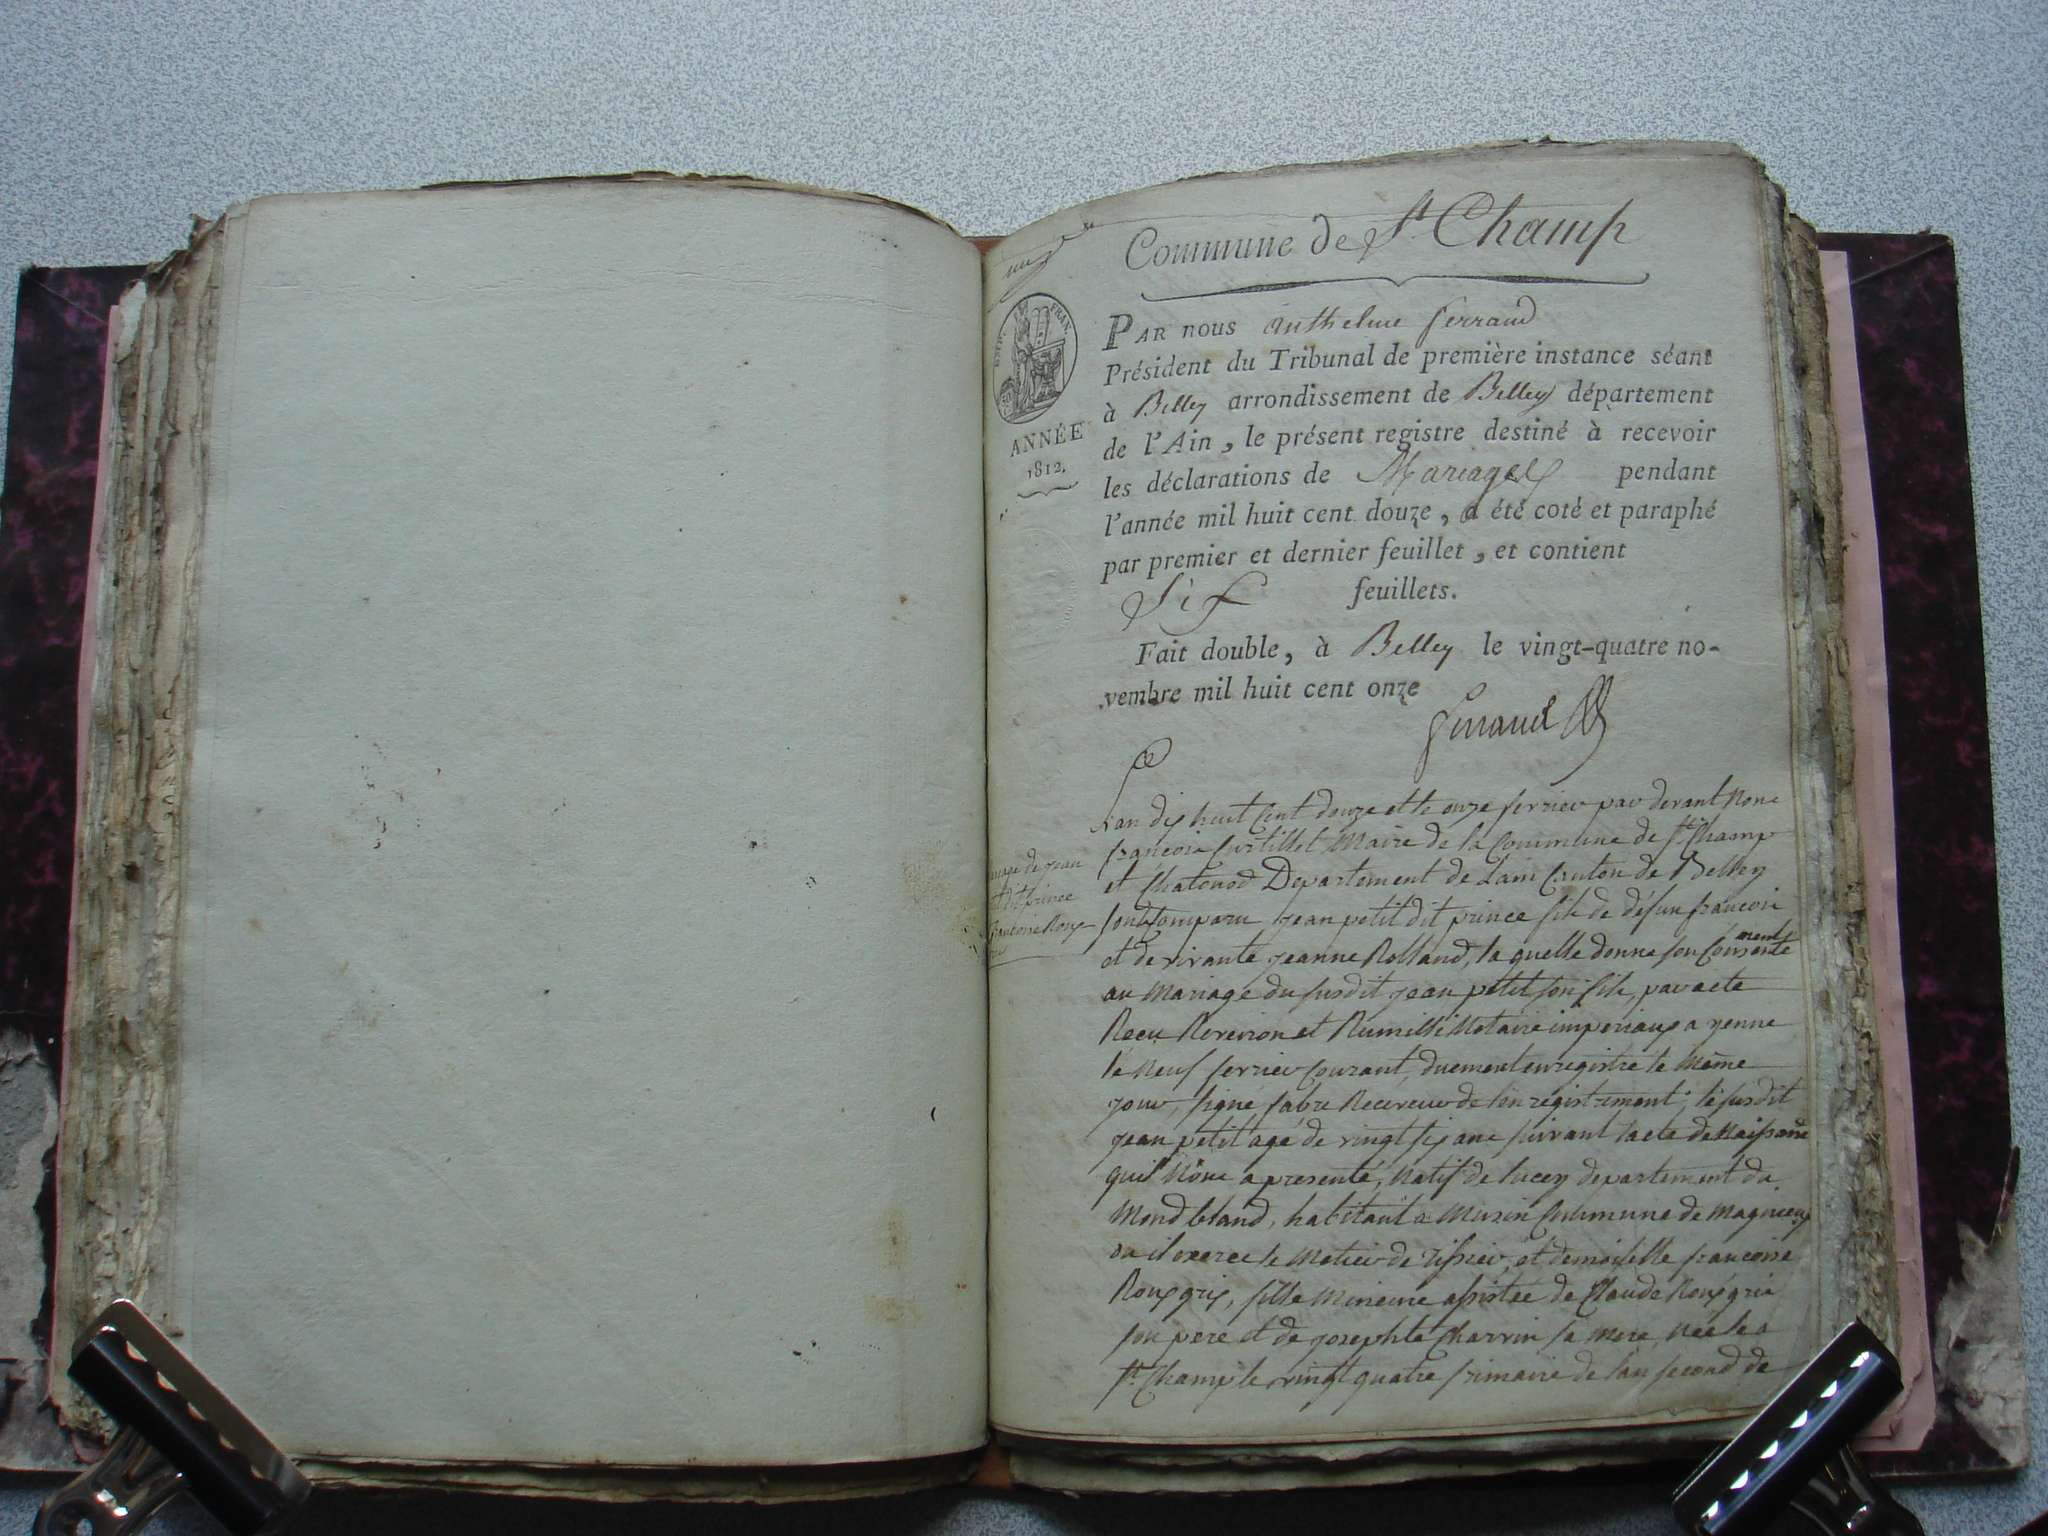 Commune de St. Champ
RÉP. FRAN.
ANNÉE
1812.
PAR NOUS Anthelme ferrand
Président du Tribunal de première instance séant
à Belley arrondissement de Belley département
de l'Ain, le présent registre destiné à recevoir
les déclarations de Mariages pendant
l'année mil huit cent douze, a été coté et paraphé
par premier et dernier feuillet, et contient
Six feuillets.
Fait double, à Belley le vingt-quatre no-
vembre mil huit cent onze
ferrand
riage de jean
dit prince
francoise Roux
L'an dix huit Cent douze et le onze fevrier par devant Nous
francois Curtillet Maire de la Commune de St Champ
et Chatonod Departement de Lain Canton de Belley
sont Comparu jean petit dit prince fils de défun francois
et de vivante jeanne Rolland, la quelle donne son Consente
ment
au Mariage du susdit jean petit son fils, par acte
Recu Reverion et Rumilli Notaire imperiaux a yenne
le Neuf fevrier Courant, duement enregistré le Même
jour, signé fabre Receveur de lenregistrement; le susdit
jean petit agé de vingt six ans suivant lacte de Naissance
quil Nous a presenté, Natif de lucey departement du
Mond bland, habitant a Musin Commune de Magnieux
ou il exerce le Metier de Tissier, et demoiselle francoise
Rouxgrix, fille Mineure assistée de Claude Rouxgrix
son pere et de josephte Charvin sa Mere, Née le a
St Champ le vingt quatre frimaire de lan second de